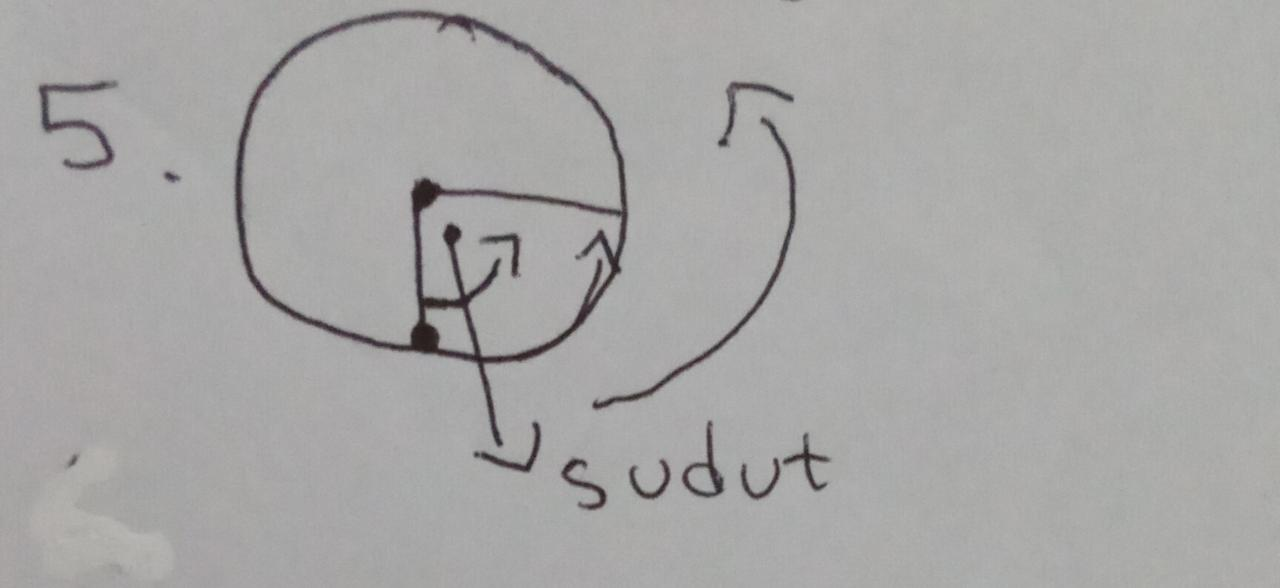 5.
sudut